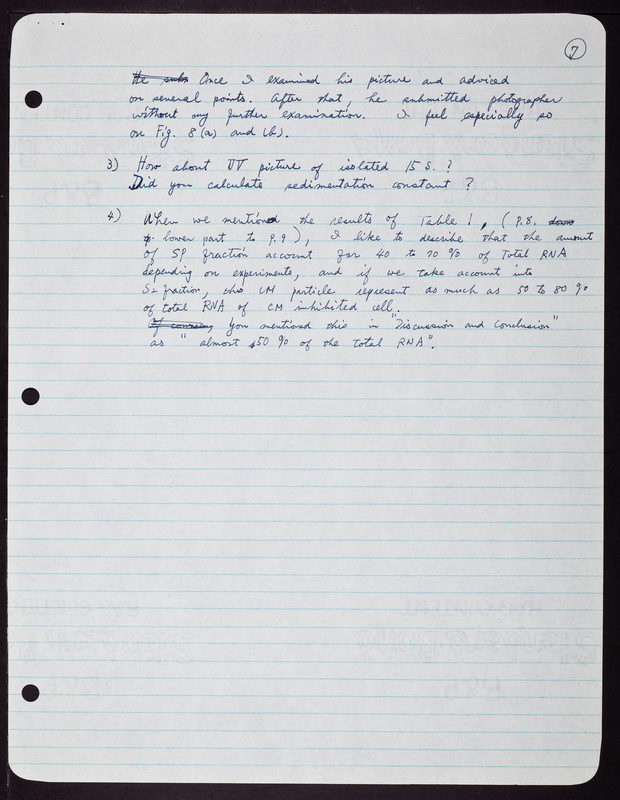 7
the subm Once I examined his picture and adviced
on several points. After that, he submitted photographer
without my further examination. I feel especially so
on Fig. 8 (a) and (b).
3) How about UV picture of isolated 15 S. ?
Did you calculate sedimentation constant ?
4) When we mentioned the results of Table 1, (p.8.
lower part to p.9), I like to describe that the amount
of SP fraction account for 40 to 70 % of Total RNA
depending on experiments, and if we take account into
S2 fraction, the CM particle represent as much as 50 to 80 %
of total RNA of CM inhibited cell.
Of course, You mentioned this in "Discussion and Conclusion"
as "almost 50 % of the total RNA".